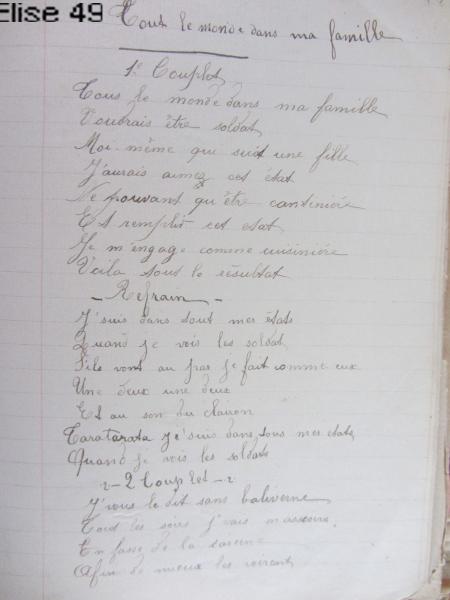 Elise 49
Tout le monde dans ma famille
1e Couplet
Tous le monde dans ma famille
Voudrais être soldat
Moi-même qui suit une fille
J'aurais aimez cet état
Ne pouvant qu'être cantinière
Et remplir cet etat
Je m'engage comme cuisinière
Voila tous le résultat
- Refrain -
J'suis dans tout mes états
Quand je vois les soldat
S'ils vont au pas je fait comme eux
Une deux une deux
Et au son du clairon
Taratarata je'suis dans tous mes etats
Quand je vois les soldats
2 Couplet
J'vous le dit sans baliverne
Tout les soirs j'vais
En fasse de la caserne
Afin de mieux les